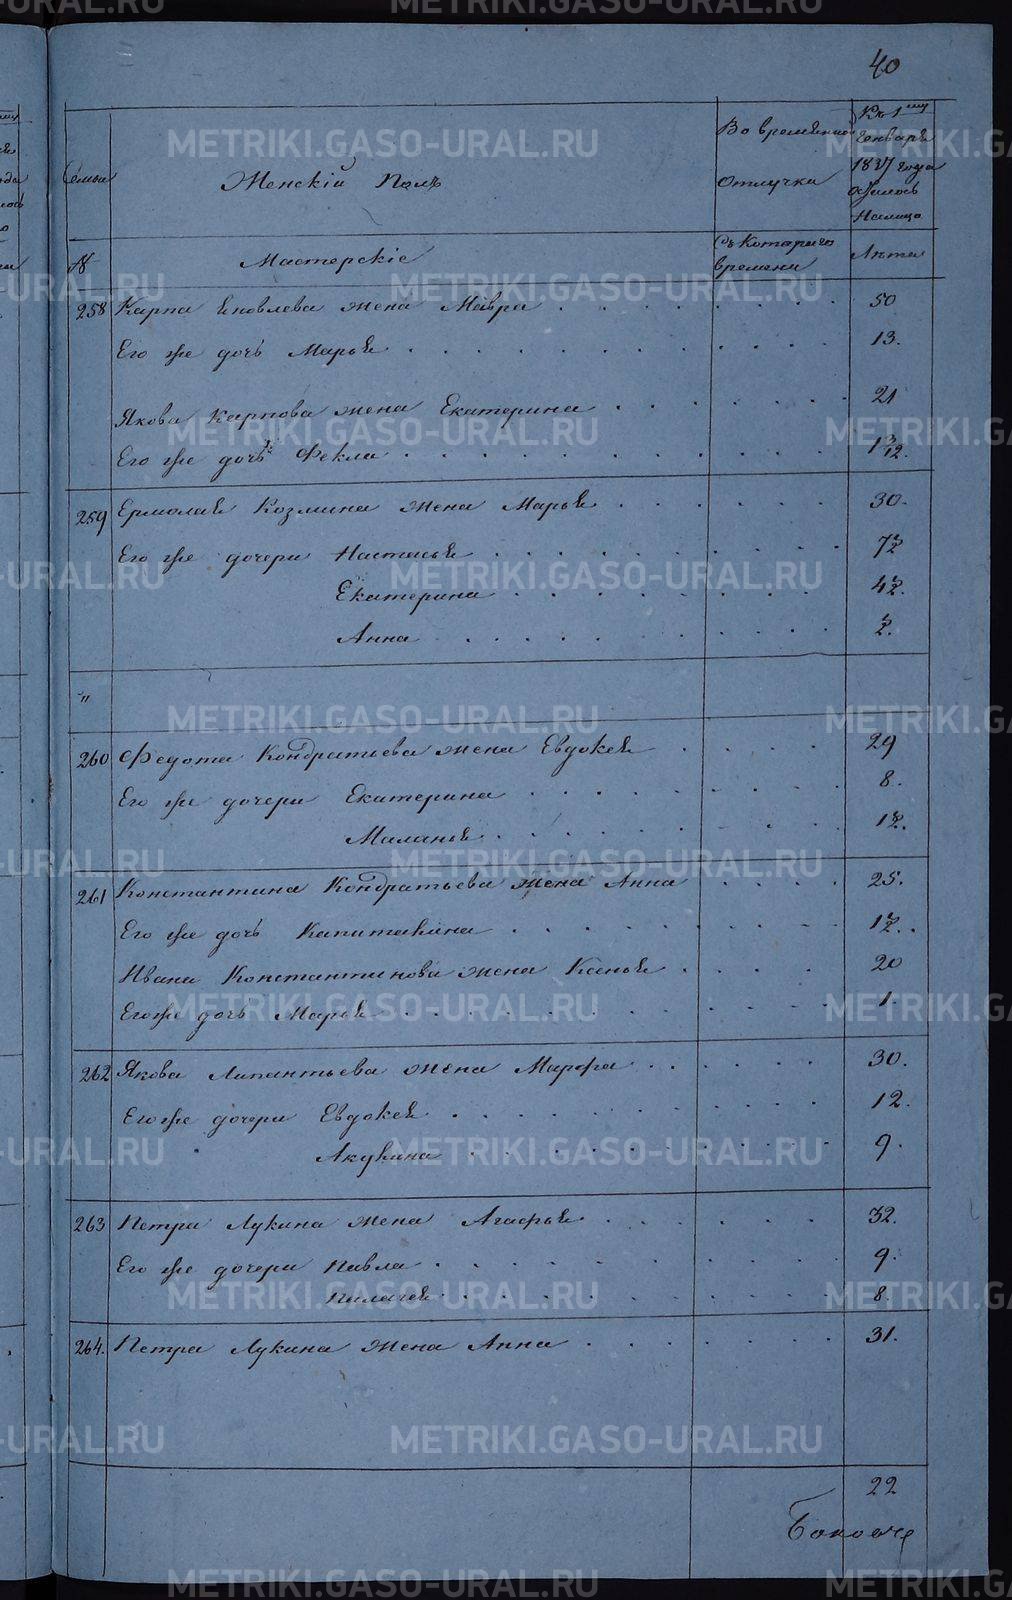 40
Семьи
Женскій Полъ
Во временной
отлучки
Къ 1му
Генваря
1837 года
Налицо
№
Мастерскіе
Съ котораго
времени
Лѣта
258 Карпа Яковлева жена Мавра 50
Его же дочь Марья 13.
Якова Карпова жена Екатерина 21
Его же дочь Фекла
259 Ермолая Козмина жена Марья 30.
Его же дочери Настасья 7½
Екатерина 4½.
Анна ½.
"
260 Федота Кондратьева жена Евдокея 29
Его же дочери Екатерина 8.
Маланья 1½.
261 Константина Кондратьева жена Анна 25.
Его же дочь Капиталина 1½.
Ивана Константинова жена Ксенья 20
Его же дочь Марья 1.
262 Якова Липантьева жена Марфа 30.
Его же дочери Евдокея 12.
Акулина 9.
263 Петра Лукина жена Агафья 32.
Его же дочери Павла 9.
Пилагея 8.
264. Петра Лукина жена Анна 31.
22
METRIKI.GASO-URAL.RU